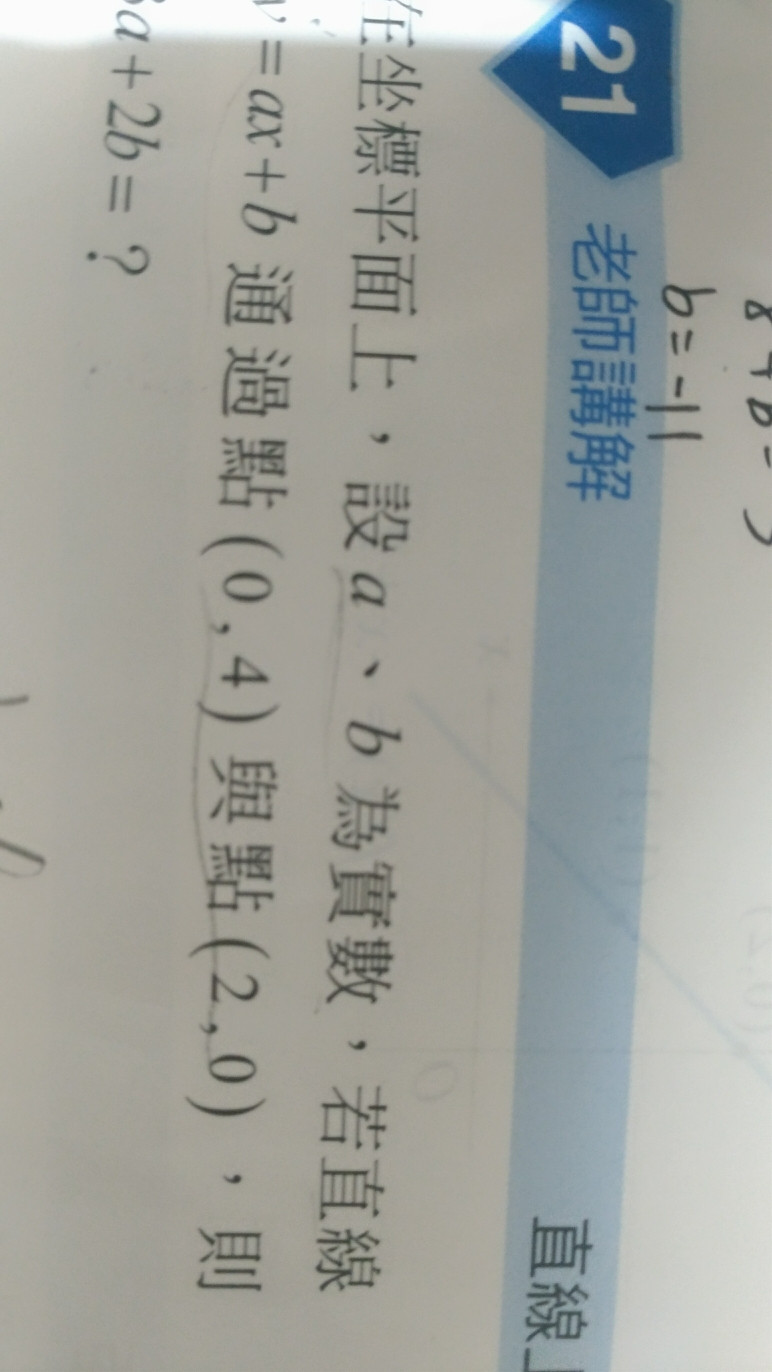 b=-11
21 老師講解 直線
在坐標平面上，設a、b為實數，若直線
y=ax+b通過點(0,4)與點(2,0)，則
a+2b=？